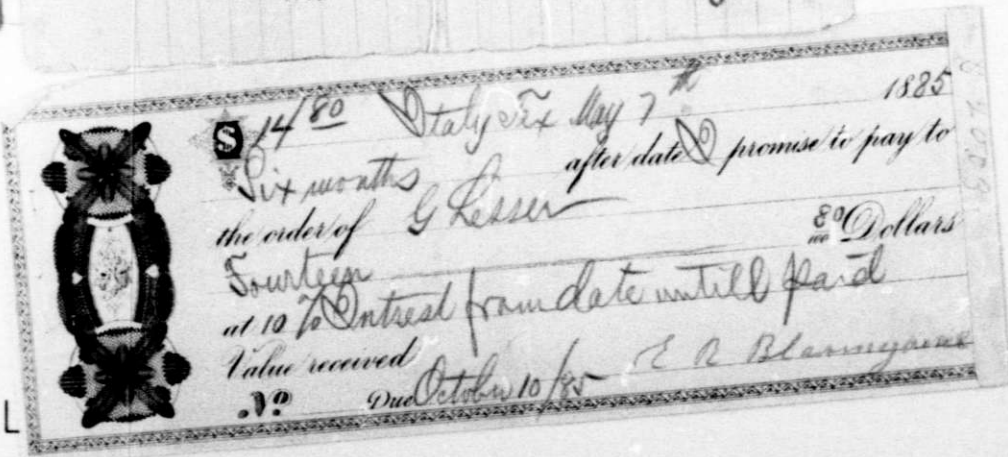 $ 14 80 Italy Tex May 7th 1885
Six months after date I promise to pay to
the order of G Lesser
Fourteen 80/100 Dollars
at 10 % Intrest from date untill paid
Value received E R
No Due October 10/85
L